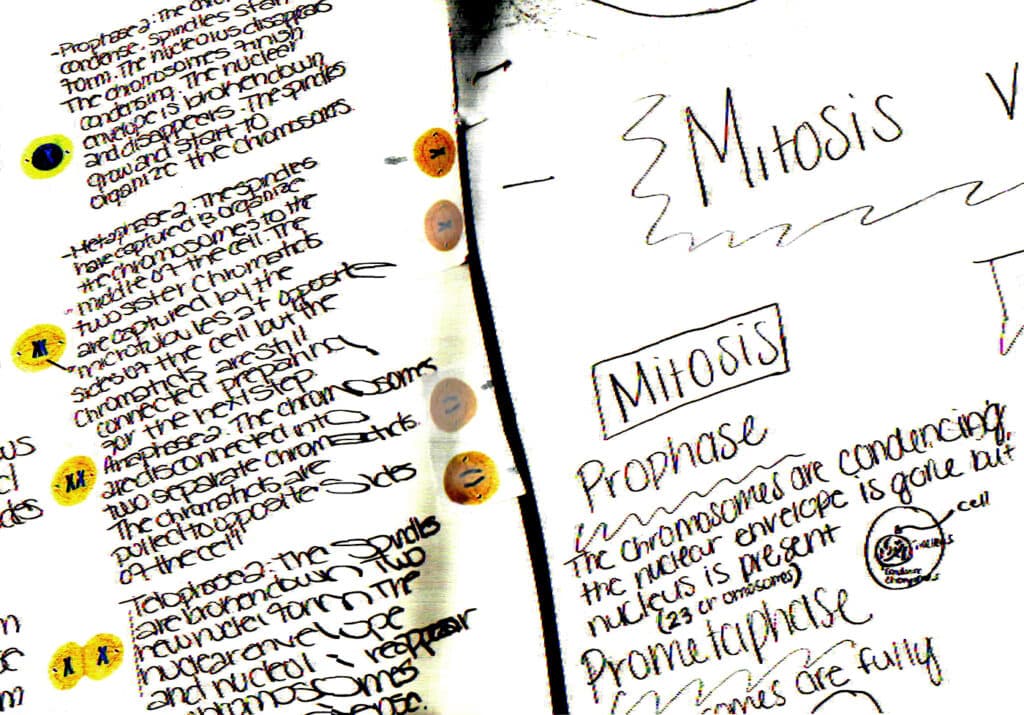 -Prophase 2: The chro
condense, spindles star
form. The nucleolus disappears
The chromosomes finish
condensing. The nuclear
envelope is broken down
and disappears. The spindles
grow and start to
organize the chromosomes.
-Metaphase 2: The spindles
have captured & organize
the chromosomes to the
middle of the cell. The
two sister chromatids
are captured by the
microtubules at opposite
sides of the cell but the
chromatids are still
connected preparing
for the next step.
Anaphase 2: The chromosomes
are disconnected into
two separate chromatids.
The chromatids are
pulled to opposite sides
of the cell
Telophase 2: The spindles
are broken down two
new nuclei form. The
nuclear envelope
and nucleoli reappear
chromosomes
us
des
m
m
Mitosis V
Mitosis
Prophase
The chromosomes are condencing,
the nuclear envelope is gone but
nucleus is present
(23 cromosomes)
cell
Prometaphase
somes are fully